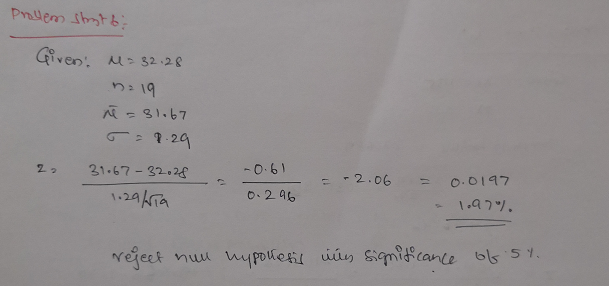 Problem stmt 6:
Given: μ = 32.28
n = 19
x̄ = 31.67
σ = 1.29
z = (31.67 - 32.28) / (1.29/√19) = -0.61 / 0.296 = -2.06 = 0.0197
= 1.97%.
reject null hypothesis with significance of 5%.